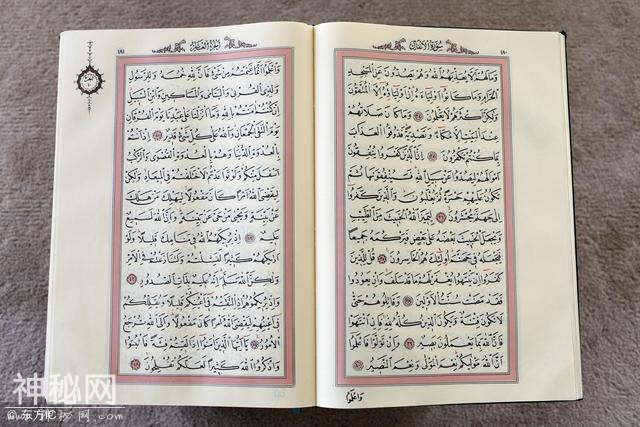 سُورَةُ الْأَنْفَالِ ١٨٠
وَمَا لَهُمْ أَلَّا يُعَذِّبَهُمُ اللَّهُ وَهُمْ يَصُدُّونَ عَنِ الْمَسْجِدِ
الْحَرَامِ وَمَا كَانُوا أَوْلِيَاءَهُ إِنْ أَوْلِيَاؤُهُ إِلَّا الْمُتَّقُونَ
وَلٰكِنَّ أَكْثَرَهُمْ لَا يَعْلَمُونَ ٣٤ وَمَا كَانَ صَلَاتُهُمْ
عِنْدَ الْبَيْتِ إِلَّا مُكَاءً وَتَصْدِيَةً فَذُوقُوا الْعَذَابَ
بِمَا كُنْتُمْ تَكْفُرُونَ ٣٥ إِنَّ الَّذِينَ كَفَرُوا يُنْفِقُونَ
أَمْوَالَهُمْ لِيَصُدُّوا عَنْ سَبِيلِ اللَّهِ فَسَيُنْفِقُونَهَا ثُمَّ
تَكُونُ عَلَيْهِمْ حَسْرَةً ثُمَّ يُغْلَبُونَ وَالَّذِينَ كَفَرُوا
إِلٰى جَهَنَّمَ يُحْشَرُونَ ٣٦ لِيَمِيزَ اللَّهُ الْخَبِيثَ مِنَ الطَّيِّبِ
وَيَجْعَلَ الْخَبِيثَ بَعْضَهُ عَلٰى بَعْضٍ فَيَرْكُمَهُ جَمِيعًا
فَيَجْعَلَهُ فِي جَهَنَّمَ أُولٰئِكَ هُمُ الْخَاسِرُونَ ٣٧ قُلْ لِلَّذِينَ
كَفَرُوا إِنْ يَنْتَهُوا يُغْفَرْ لَهُمْ مَا قَدْ سَلَفَ وَإِنْ يَعُودُوا
فَقَدْ مَضَتْ سُنَّتُ الْأَوَّلِينَ ٣٨ وَقَاتِلُوهُمْ حَتّٰى
لَا تَكُونَ فِتْنَةٌ وَيَكُونَ الدِّينُ كُلُّهُ لِلَّهِ فَإِنِ انْتَهَوْا
فَإِنَّ اللَّهَ بِمَا يَعْمَلُونَ بَصِيرٌ ٣٩ وَإِنْ تَوَلَّوْا فَاعْلَمُوا
أَنَّ اللَّهَ مَوْلٰيكُمْ نِعْمَ الْمَوْلٰى وَنِعْمَ النَّصِيرُ ٤٠
وَاعْلَمُوا
الْجُزْءُ الْعَاشِرُ ١٨١
وَاعْلَمُوا أَنَّمَا غَنِمْتُمْ مِنْ شَيْءٍ فَأَنَّ لِلَّهِ خُمُسَهُ وَلِلرَّسُولِ
وَلِذِي الْقُرْبٰى وَالْيَتَامٰى وَالْمَسَاكِينِ وَابْنِ السَّبِيلِ
إِنْ كُنْتُمْ اٰمَنْتُمْ بِاللَّهِ وَمَا أَنْزَلْنَا عَلٰى عَبْدِنَا يَوْمَ الْفُرْقَانِ
يَوْمَ الْتَقَى الْجَمْعَانِ وَاللَّهُ عَلٰى كُلِّ شَيْءٍ قَدِيرٌ ٤١ إِذْ أَنْتُمْ
بِالْعُدْوَةِ الدُّنْيَا وَهُمْ بِالْعُدْوَةِ الْقُصْوٰى وَالرَّكْبُ
أَسْفَلَ مِنْكُمْ وَلَوْ تَوَاعَدْتُمْ لَاخْتَلَفْتُمْ فِي الْمِيعَادِ وَلٰكِنْ
لِيَقْضِيَ اللَّهُ أَمْرًا كَانَ مَفْعُولًا لِيَهْلِكَ مَنْ هَلَكَ
عَنْ بَيِّنَةٍ وَيَحْيٰى مَنْ حَيَّ عَنْ بَيِّنَةٍ وَإِنَّ اللَّهَ لَسَمِيعٌ
عَلِيمٌ ٤٢ إِذْ يُرِيكَهُمُ اللَّهُ فِي مَنَامِكَ قَلِيلًا وَلَوْ
أَرٰيكَهُمْ كَثِيرًا لَفَشِلْتُمْ وَلَتَنَازَعْتُمْ فِي الْأَمْرِ
وَلٰكِنَّ اللَّهَ سَلَّمَ إِنَّهُ عَلِيمٌ بِذَاتِ الصُّدُورِ ٤٣
وَإِذْ يُرِيكُمُوهُمْ إِذِ الْتَقَيْتُمْ فِي أَعْيُنِكُمْ قَلِيلًا وَيُقَلِّلُكُمْ
فِي أَعْيُنِهِمْ لِيَقْضِيَ اللَّهُ أَمْرًا كَانَ مَفْعُولًا وَإِلَى اللَّهِ تُرْجَعُ
الْأُمُورُ ٤٤ يَا أَيُّهَا الَّذِينَ اٰمَنُوا إِذَا لَقِيتُمْ فِئَةً فَاثْبُتُوا
وَاذْكُرُوا اللَّهَ كَثِيرًا لَعَلَّكُمْ تُفْلِحُونَ ٤٥
神秘网
东方IC